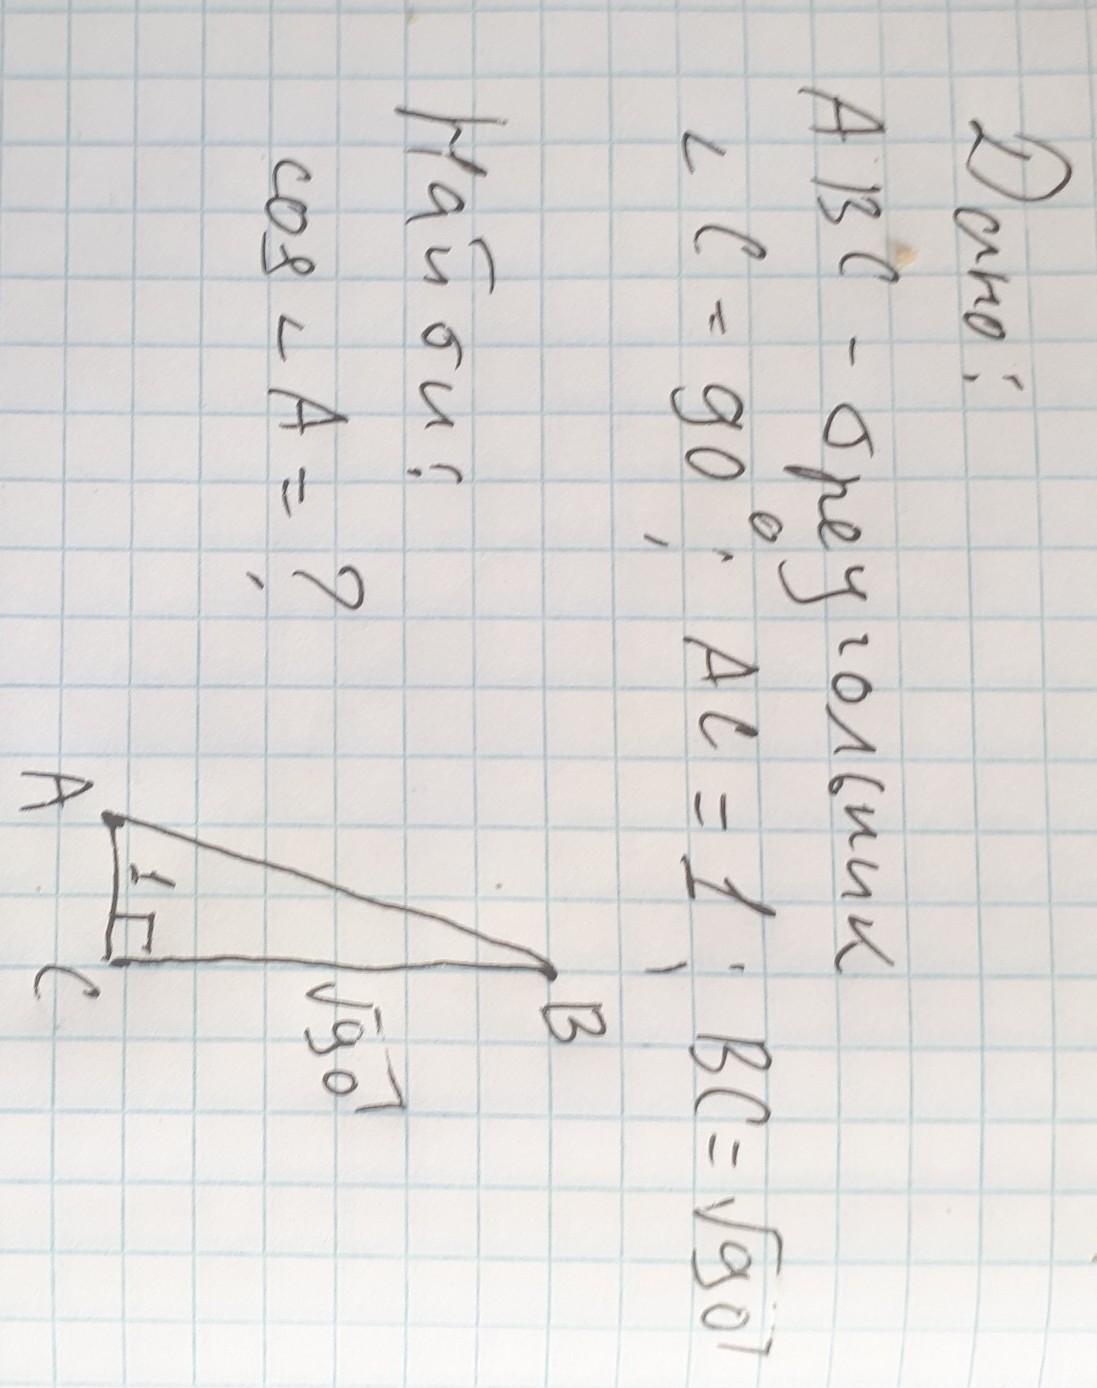 Дано:
ABC - треугольник
∠C = 90°; AC = 1; BC = √90
Найти:
cos ∠A = ?;
B
√90
1
A
C